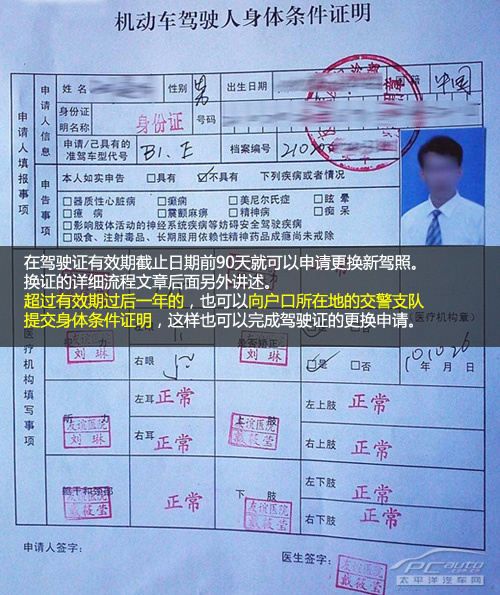 机动车驾驶人身体条件证明
申请人填报事项
申请人信息
姓名
性别
男
出生日期
国籍
中国
身份证
明名称
身份证
号码
申请/已具有的
准驾车型代号
B1.E
档案编号
申告事项
本人如实申告 □具有 ☑不具有 下列疾病或者情况
□器质性心脏病 □癫痫 □美尼尔氏症 □眩晕
□癔病 □震颤麻痹 □精神病 □痴呆
□影响肢体活动的神经系统疾病等妨碍安全驾驶疾病
□吸食、注射毒品、长期服用依赖性精神药品成瘾尚未戒除
在驾驶证有效期截止日期前90天就可以申请更换新驾照。
换证的详细流程文章后面另外讲述。
超过有效期过后一年的，也可以向户口所在地的交警支队
提交身体条件证明，这样也可以完成驾驶证的更换申请。
医疗机构填写事项
（医疗机构章）
刘琳
是否矫正
刘琳
右眼
□是 □否
年 月 日
听力
友谊医院
刘琳
左耳
正常
右耳
正常
上肢
友谊医院
戴筱莹
左上肢
正常
右上肢
正常
躯干和颈部
友谊医院
戴筱莹
正常
下肢
友谊医院
戴筱莹
左下肢
正常
右下肢
正常
申请人签字：
医生签字：
友谊医院
戴筱莹
PCauto
太平洋汽车网